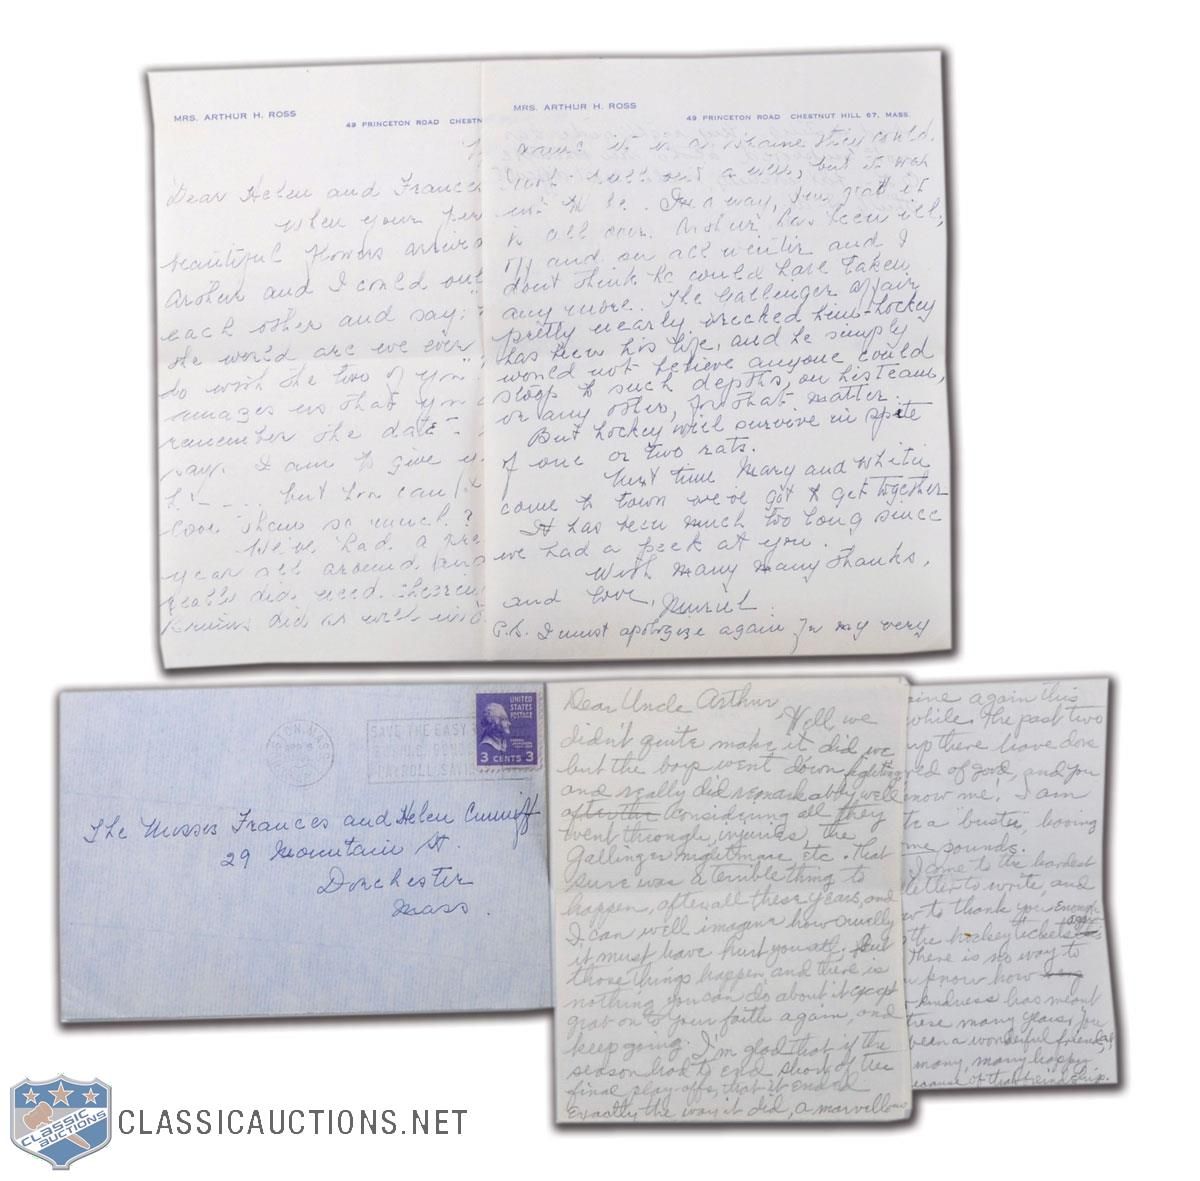 MRS. ARTHUR H. ROSS
49 PRINCETON ROAD CHESTN
Dear Helen and Frances
When your per
beautiful flowers arrive
Arthur and I could only
each other and say:
the world are we ever
do with the two of you
amazes us that you
remember the date -
say. I am to give y
h - - - - . but how can
love them so much?
We've had a
year all around and
really did need cheering
Bruins did as well
MRS. ARTHUR H. ROSS
49 PRINCETON ROAD CHESTNUT HILL 67, MASS.
it is a shame they could
not pull out a win, but it was
In a way, I'm glad it
is all over. Arthur has been ill,
off and on all winter and I
don't think he could have taken
any more. The Gallinger affair
pretty nearly wrecked him - hockey
has been his life, and he simply
would not believe anyone could
stoop to such depths, on his team,
or any other, for that matter.
But hockey will survive in spite
of one or two rats.
Next time Mary and
come to town we've got to get together
It has been much too long since
we had a peek at you.
With many many thanks,
and love, Muriel
P.S. I must apologize again for my very
UNITED
STATES
POSTAGE
3 CENTS 3
SAVE THE EASY
PAYROLL SAVI
The Misses Frances and Helen Cunniff
29 Mountain St.
Dorchester
Mass.
Dear Uncle Arthur
Well we
didn't quite make it did we
but the boys went down fighting
and really did remarkably well
after the considering all they
went through, injuries, the
Gallinger nightmare etc. That
sure was a terrible thing to
happen, after all these years, and
I can well imagine how cruelly
it must have hurt you all, but
those things happen and there is
nothing you can do about it except
grab on to your faith again, and
keep going. I'm glad that if the
season had to end short of the
final play-offs, that it ended
exactly the way it did, a marvellous
aine again this
while. The past two
up there have done
red of good, and you
know me! I am
a buster, losing
me pounds.
I come to the hardest
letter to write, and
w to thank you enough
the hockey tickets
There is no way to
know how
kindness has meant
these many years, you
been a wonderful friend,
many, many happy
because of that friendship.
CLASSIC
AUCTIONS
CLASSICAUCTIONS.NET